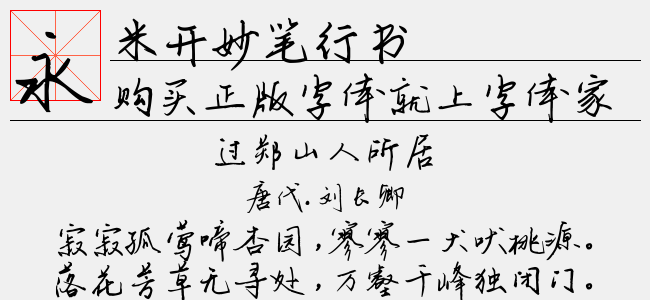 永
米开妙笔行书
购买正版字体就上字体家
过郑山人所居
唐代.刘长卿
寂寂孤莺啼杏园,寥寥一犬吠桃源。
落花芳草无寻处,万壑千峰独闭门。